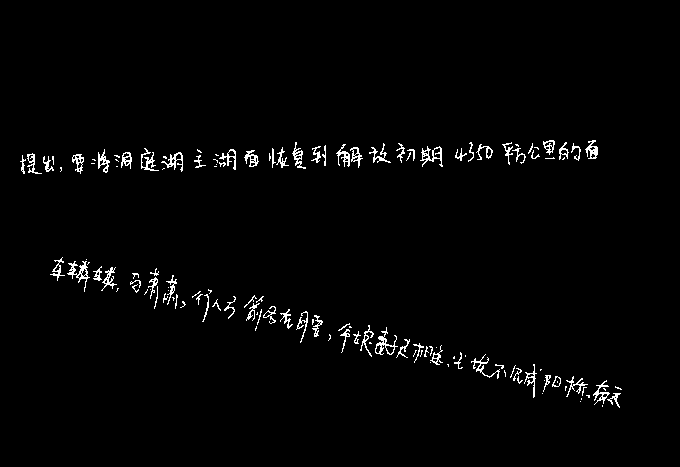 提出,要将洞庭湖主湖面恢复到解放初期4350平方公里的面
车辚辚,马萧萧,行人弓箭各在腰,爷娘妻子走相送,尘埃不见咸阳桥.